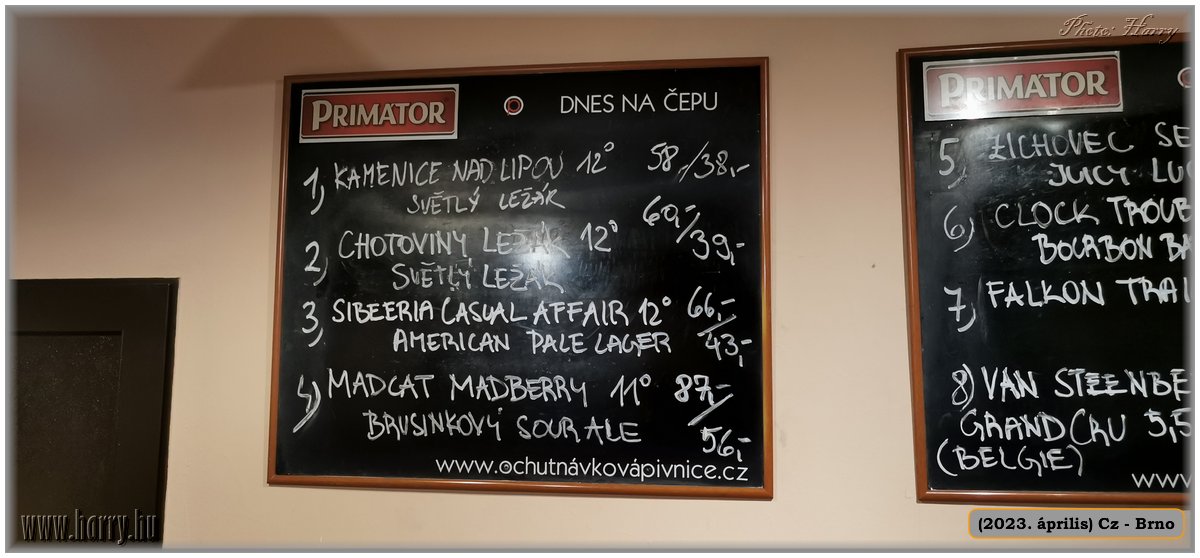 Photo: Harry
PRIMÁTOR
DNES NA ČEPU
1) KAMENICE NAD LIPOU 12° 58,-/38,-
SVĚTLÝ LEŽÁK
2) CHOTOVINY LEŽÁK 12° 60,-/39,-
SVĚTLÝ LEŽÁK
3) SIBEERIA CASUAL AFFAIR 12° 66,-/43,-
AMERICAN PALE LAGER
4) MADCAT MADBERRY 11° 87,-/56,-
BRUSINKOVÝ SOUR ALE
www.ochutnávkovápivnice.cz
PRIMÁTOR
5) ZICHOVEC SE
JUCY LU
6) CLOCK TROUB
BOURBON BA
7) FALKON TRAI
8) VAN STEENBE
GRAND CRU 5,5
(BELGIE)
www
www.harry.hu
(2023. április) Cz - Brno